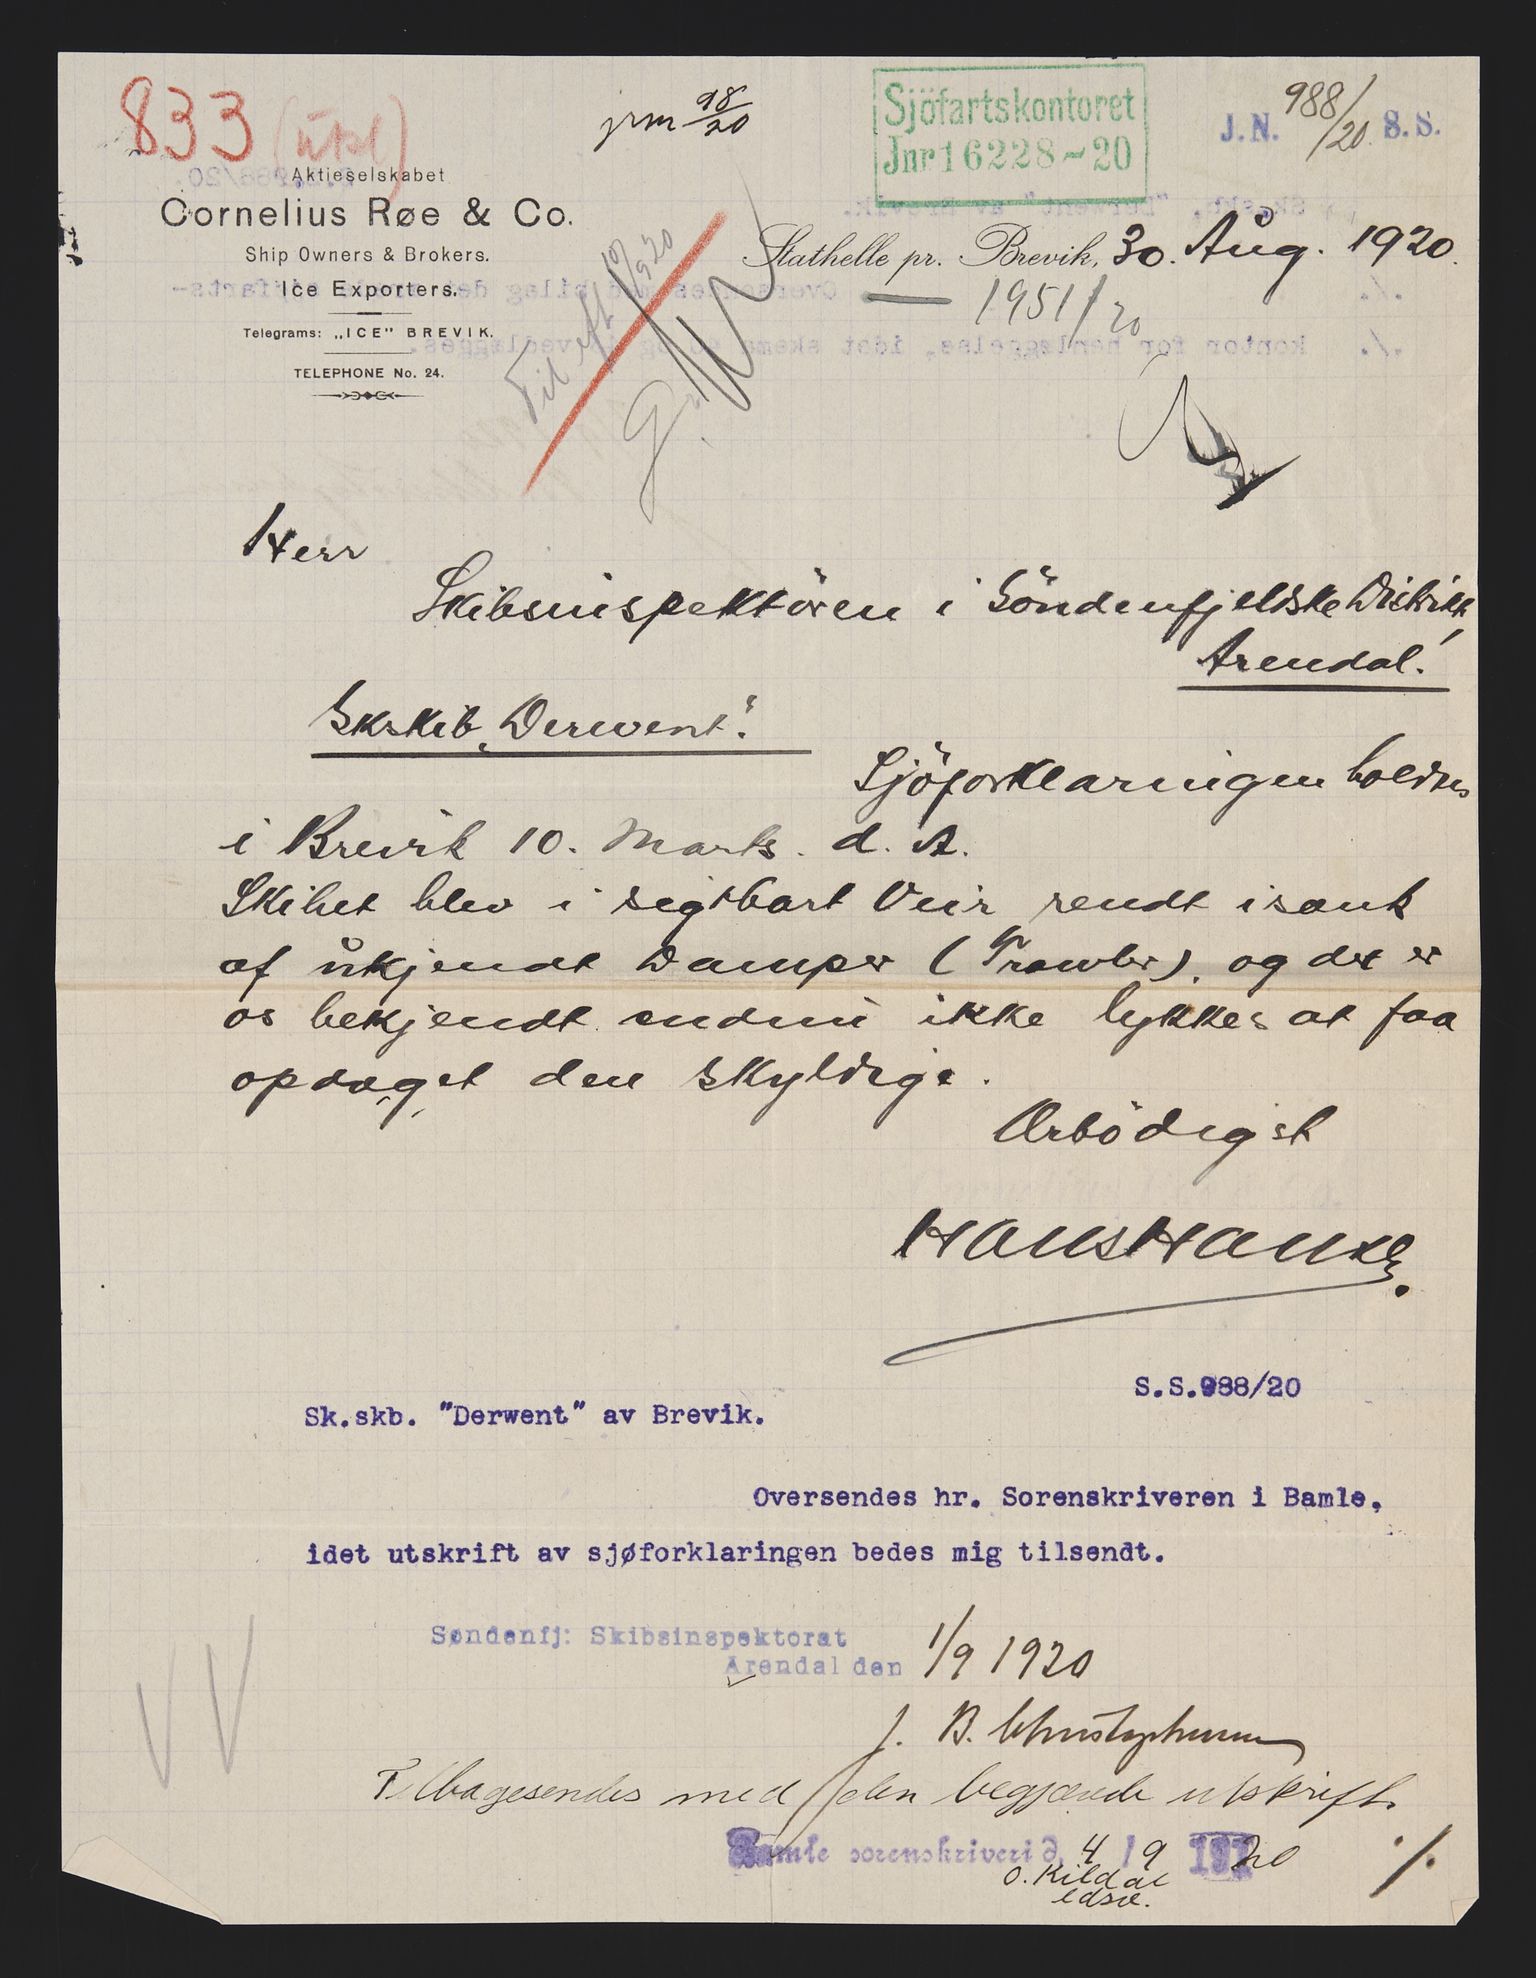 833 (ukl)
jrnr 98/20
Sjöfartskontoret
Jnr 16228-20
J.N. 988/20 S.S.
Aktieselskabet
Cornelius Røe & Co.
Ship Owners & Brokers.
Ice Exporters.
Telegrams: „ICE” BREVIK.
TELEPHONE No. 24.
Stathelle pr. Brevik, 30. Aug. 1920.
1951/20
Til eft 10/9 20
Herr
Skibsinspektören i Söndenfjeldske Distrikt,
Arendal!
Skskib „Derwent".
Sjöforklaringen holdtes
i Brevik 10. Marts. d. A.
Skibet blev i sigtbart Veir rendt isank
af ukjendt Damper (Trawler), og det er
os bekjendt endnu ikke lykkes at faa
opdaget den skyldige.
Ærbödigst
Hans Hansen.
S.S.988/20
Sk.skb. "Derwent" av Brevik.
Oversendes hr. Sorenskriveren i Bamle,
idet utskrift av sjøforklaringen bedes mig tilsendt.
Søndenfj: Skibsinspektorat
Arendal den 1/9 1920
J. B. Christophersen
Tilbagesendes med den begjærede utskrift.
Bamle sorenskriveri d. 4/9 1920
O. Kildal
edsv.
./.